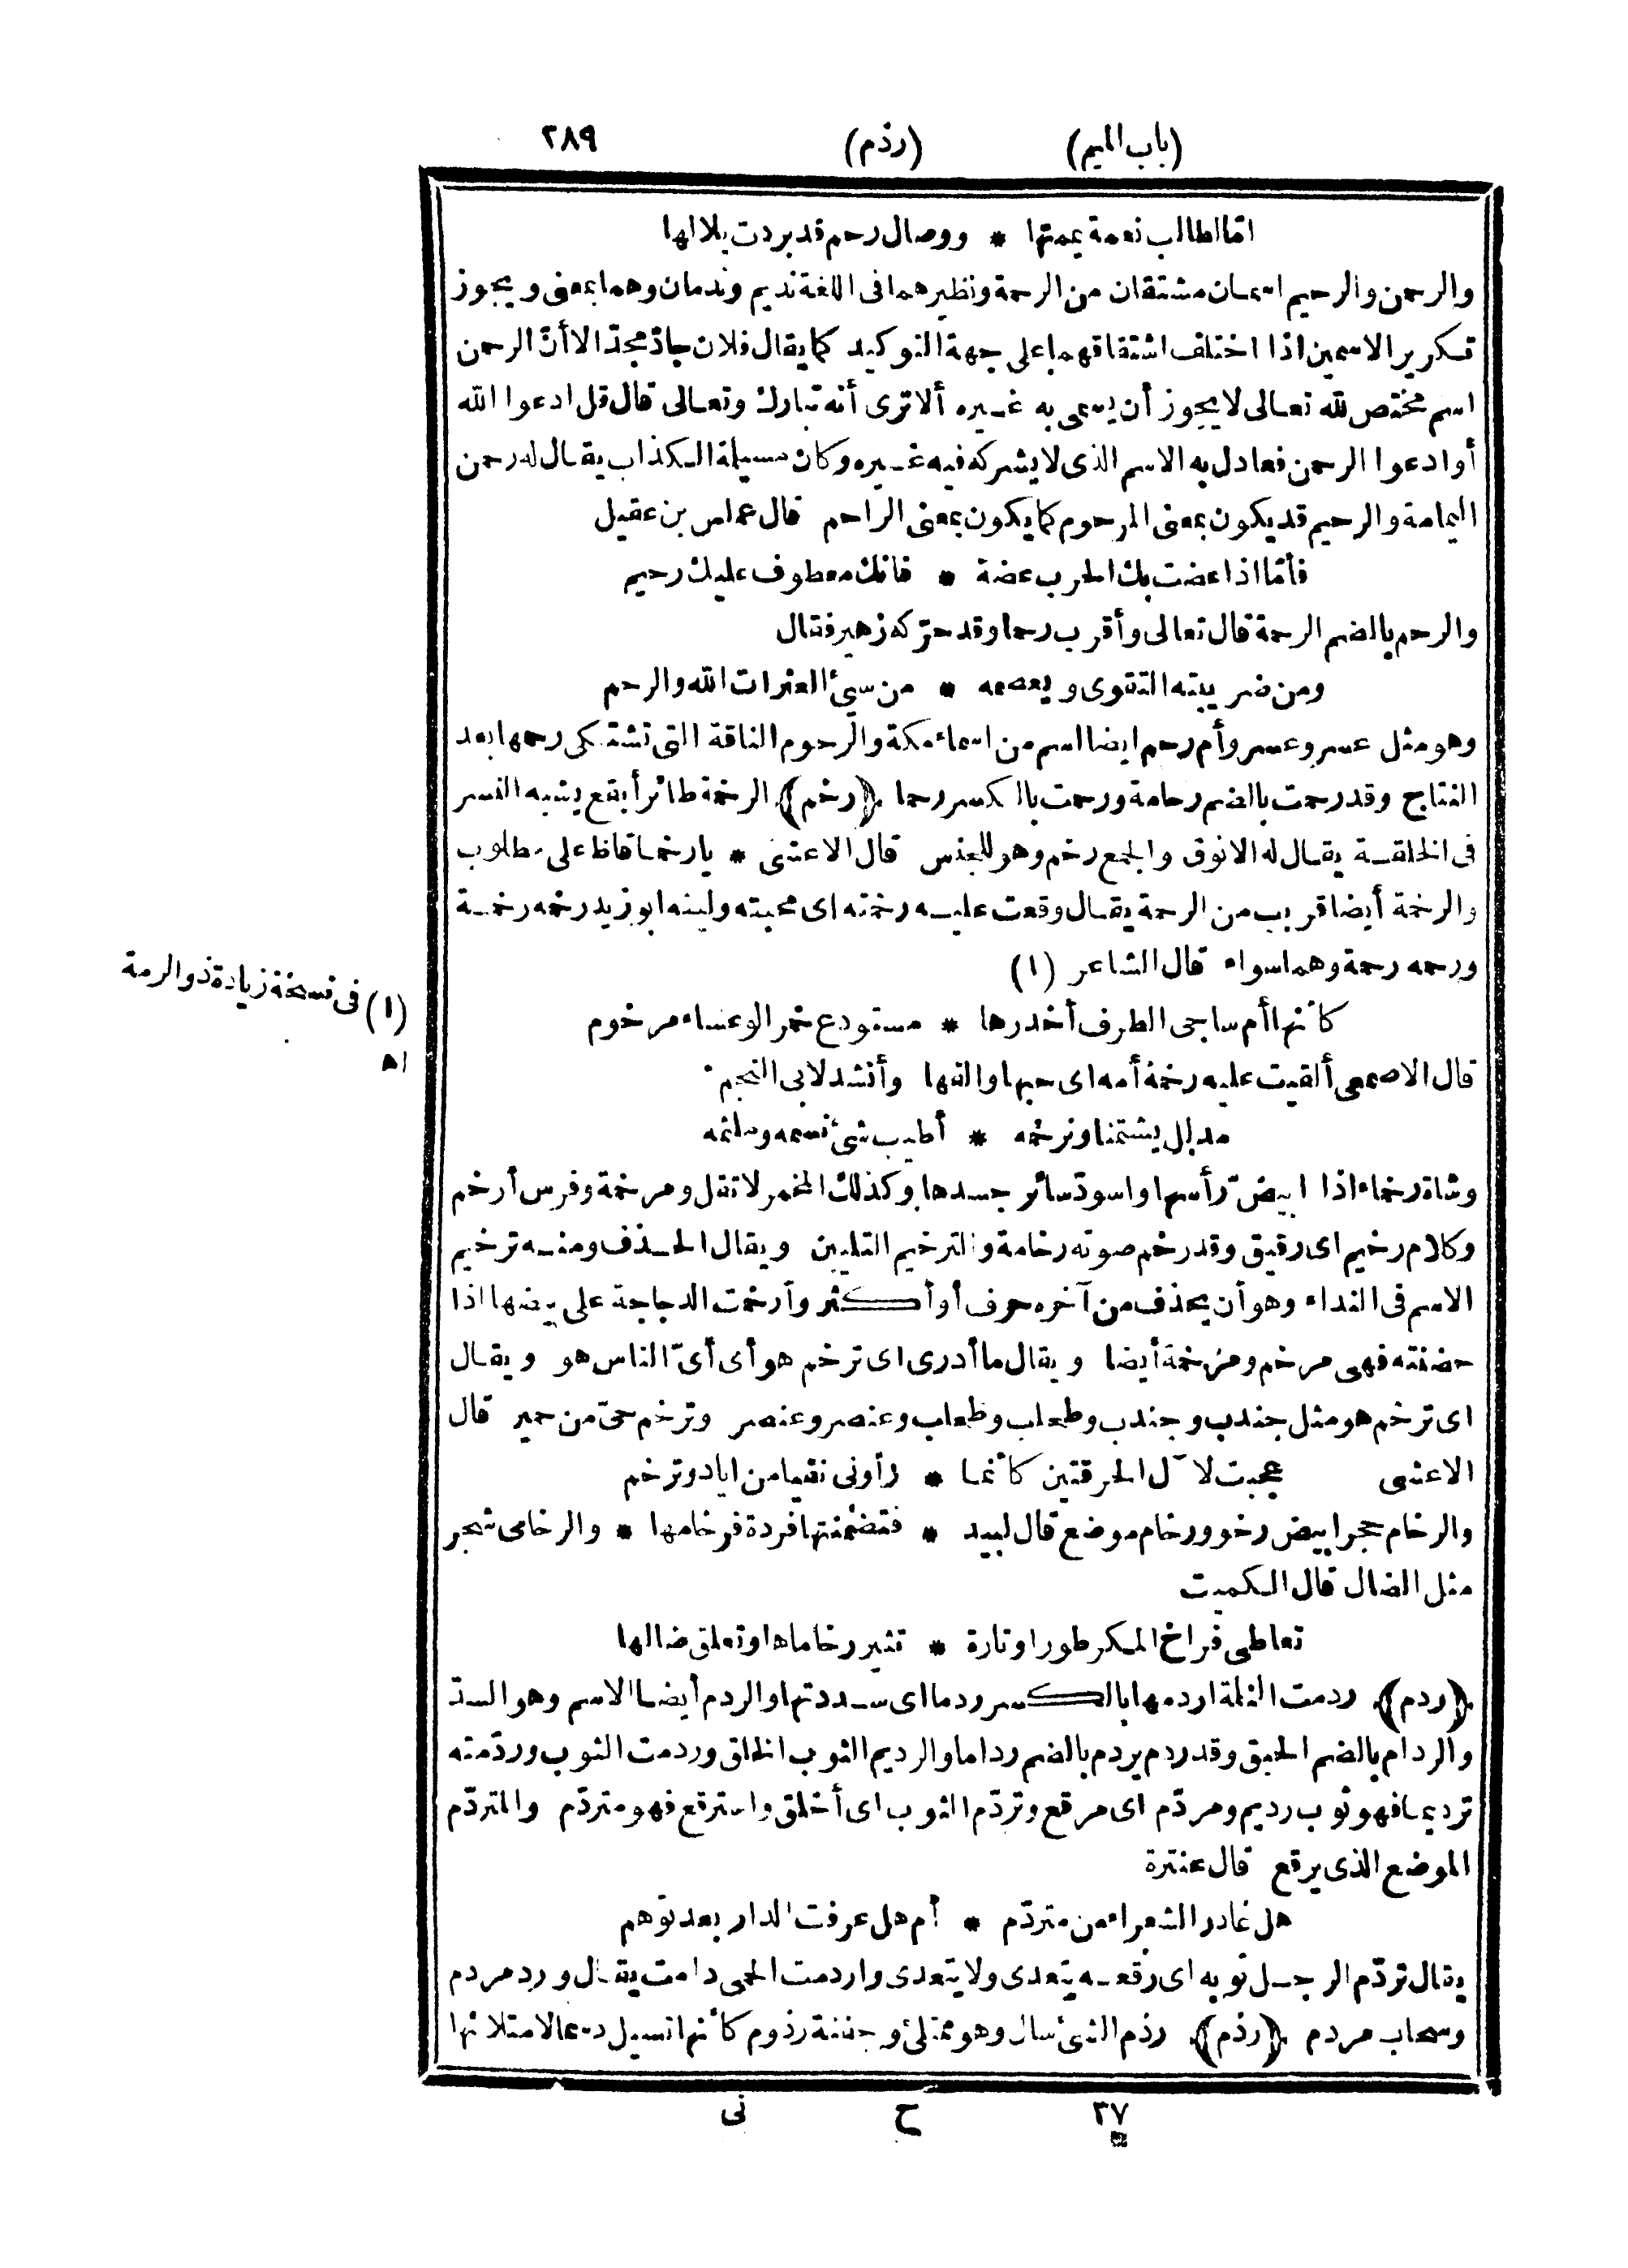 (باب الميم) (رذم) ٢٨٩
امّا لطالب نعمة يممتها * ووصال رحم قد بردت بلالها
والرحمن والرحيم اسمان مشتقان من الرحمة ونظيرهما فى اللغة نديم وندمان وهما بمعنى ويجوز
تكرير الاسمين اذا اختلف اشتقاقهما على جهة التوكيد كما يقال فلان جادّ مجدّ الا أنّ الرحمن
اسم مختص لله تعالى لا يجوز أن يسمى به غيره ألا ترى أنه تبارك وتعالى قال قل ادعوا الله
أو ادعوا الرحمن فعادل به الاسم الذى لا يشركه فيه غيره وكان مسيلمة الكذاب يقال له رحمن
اليمامة والرحيم قد يكون بمعنى المرحوم كما يكون بمعنى الراحم قال عملس بن عقيل
فأمّا اذا عضت بك الحرب عضة * فانك معطوف عليك رحيم
والرحم بالضم الرحمة قال تعالى وأقرب رحما وقد حرّكه زهير فقال
ومن ضريبته التقوى ويعصمه * من سيئ العثرات الله والرحم
وهو مثل عسر وعسر وأم رحم ايضا اسم من اسماء مكة والرحوم الناقة التى تشتكى رحمها بعد
النتاج وقد رحمت بالضم رحامة ورحمت بالكسر رحما ﴿رخم﴾ الرخمة طائر أبقع يشبه النسر
فى الخلقة يقال له الانوق والجمع رخم وهو للجنس قال الاعشى * يا رخما قاظ على مطلوب
والرخمة أيضا قريب من الرحمة يقال وقعت عليه رخمته اى محبته ولينه ابو زيد رخمه رخمة
ورحمه رحمة وهما سواء قال الشاعر (١)
(١) فى نسخة زيادة ذو الرمة
اه
كأنها أم ساجى الطرف أخدرها * مستودع خمر الوعساء مرخوم
قال الاصمعى ألقيت عليه رخمة أمه اى حبها والفها وأنشد لابى النجم
مدلل يشتمنا ونرخمه * أطيب شئ نسمه وملثمه
وشاة رخماء اذا ابيضّ رأسها واسودّ سائر جسدها وكذلك المخمر لا تقل ومرخمة وفرس أرخم
وكلام رخيم اى رقيق وقد رخم صوته رخامة والترخيم التليين ويقال الحذف ومنه ترخيم
الاسم فى النداء وهو أن يحذف من آخره حرف أو أكثر وأرخمت الدجاجة على بيضها اذا
حضنته فهى مرخم ومرخمة أيضا ويقال ما أدرى اى ترخم هو أى أىّ الناس هو ويقال
اى ترخم هو مثل جندب وجندب وطحلب وطحلب وعنصر وعنصر وترخم حىّ من حمير قال
الاعشى عجبت لآل الحرقتين كأنما * رأونى نفيا من اياد وترخم
والرخام حجر ابيض رخو ورخام موضع قال لبيد * فتضمنتها فردة فرخامها * والرخامى شجر
مثل الضال قال الكميت
تعاطى فراخ المكر طورا وتارة * تثير رخاماها وتعلق ضالها
﴿ردم﴾ ردمت الثلمة اردمها بالكسر ردما اى سددتها والردم أيضا الاسم وهو السدّ
والردام بالضم الحبق وقد ردم يردم بالضم رداما والرديم الثوب الخلق وردمت الثوب وردّمته
ترديما فهو ثوب رديم ومردّم اى مرقع وتردّم الثوب اى أخلق واسترقع فهو متردّم والمتردّم
الموضع الذى يرقع قال عنترة
هل غادر الشعراء من متردّم * أم هل عرفت الدار بعد توهم
يقال تردّم الرجل ثوبه اى رقعه يتعدى ولا يتعدى واردمت الحمى دامت يقال ورد مردم
وسحاب مردم ﴿رذم﴾ رذم الشئ سال وهو ممتلئ وجفنة رذوم كأنها تسيل دسما لامتلائها
٣٧ ح نى